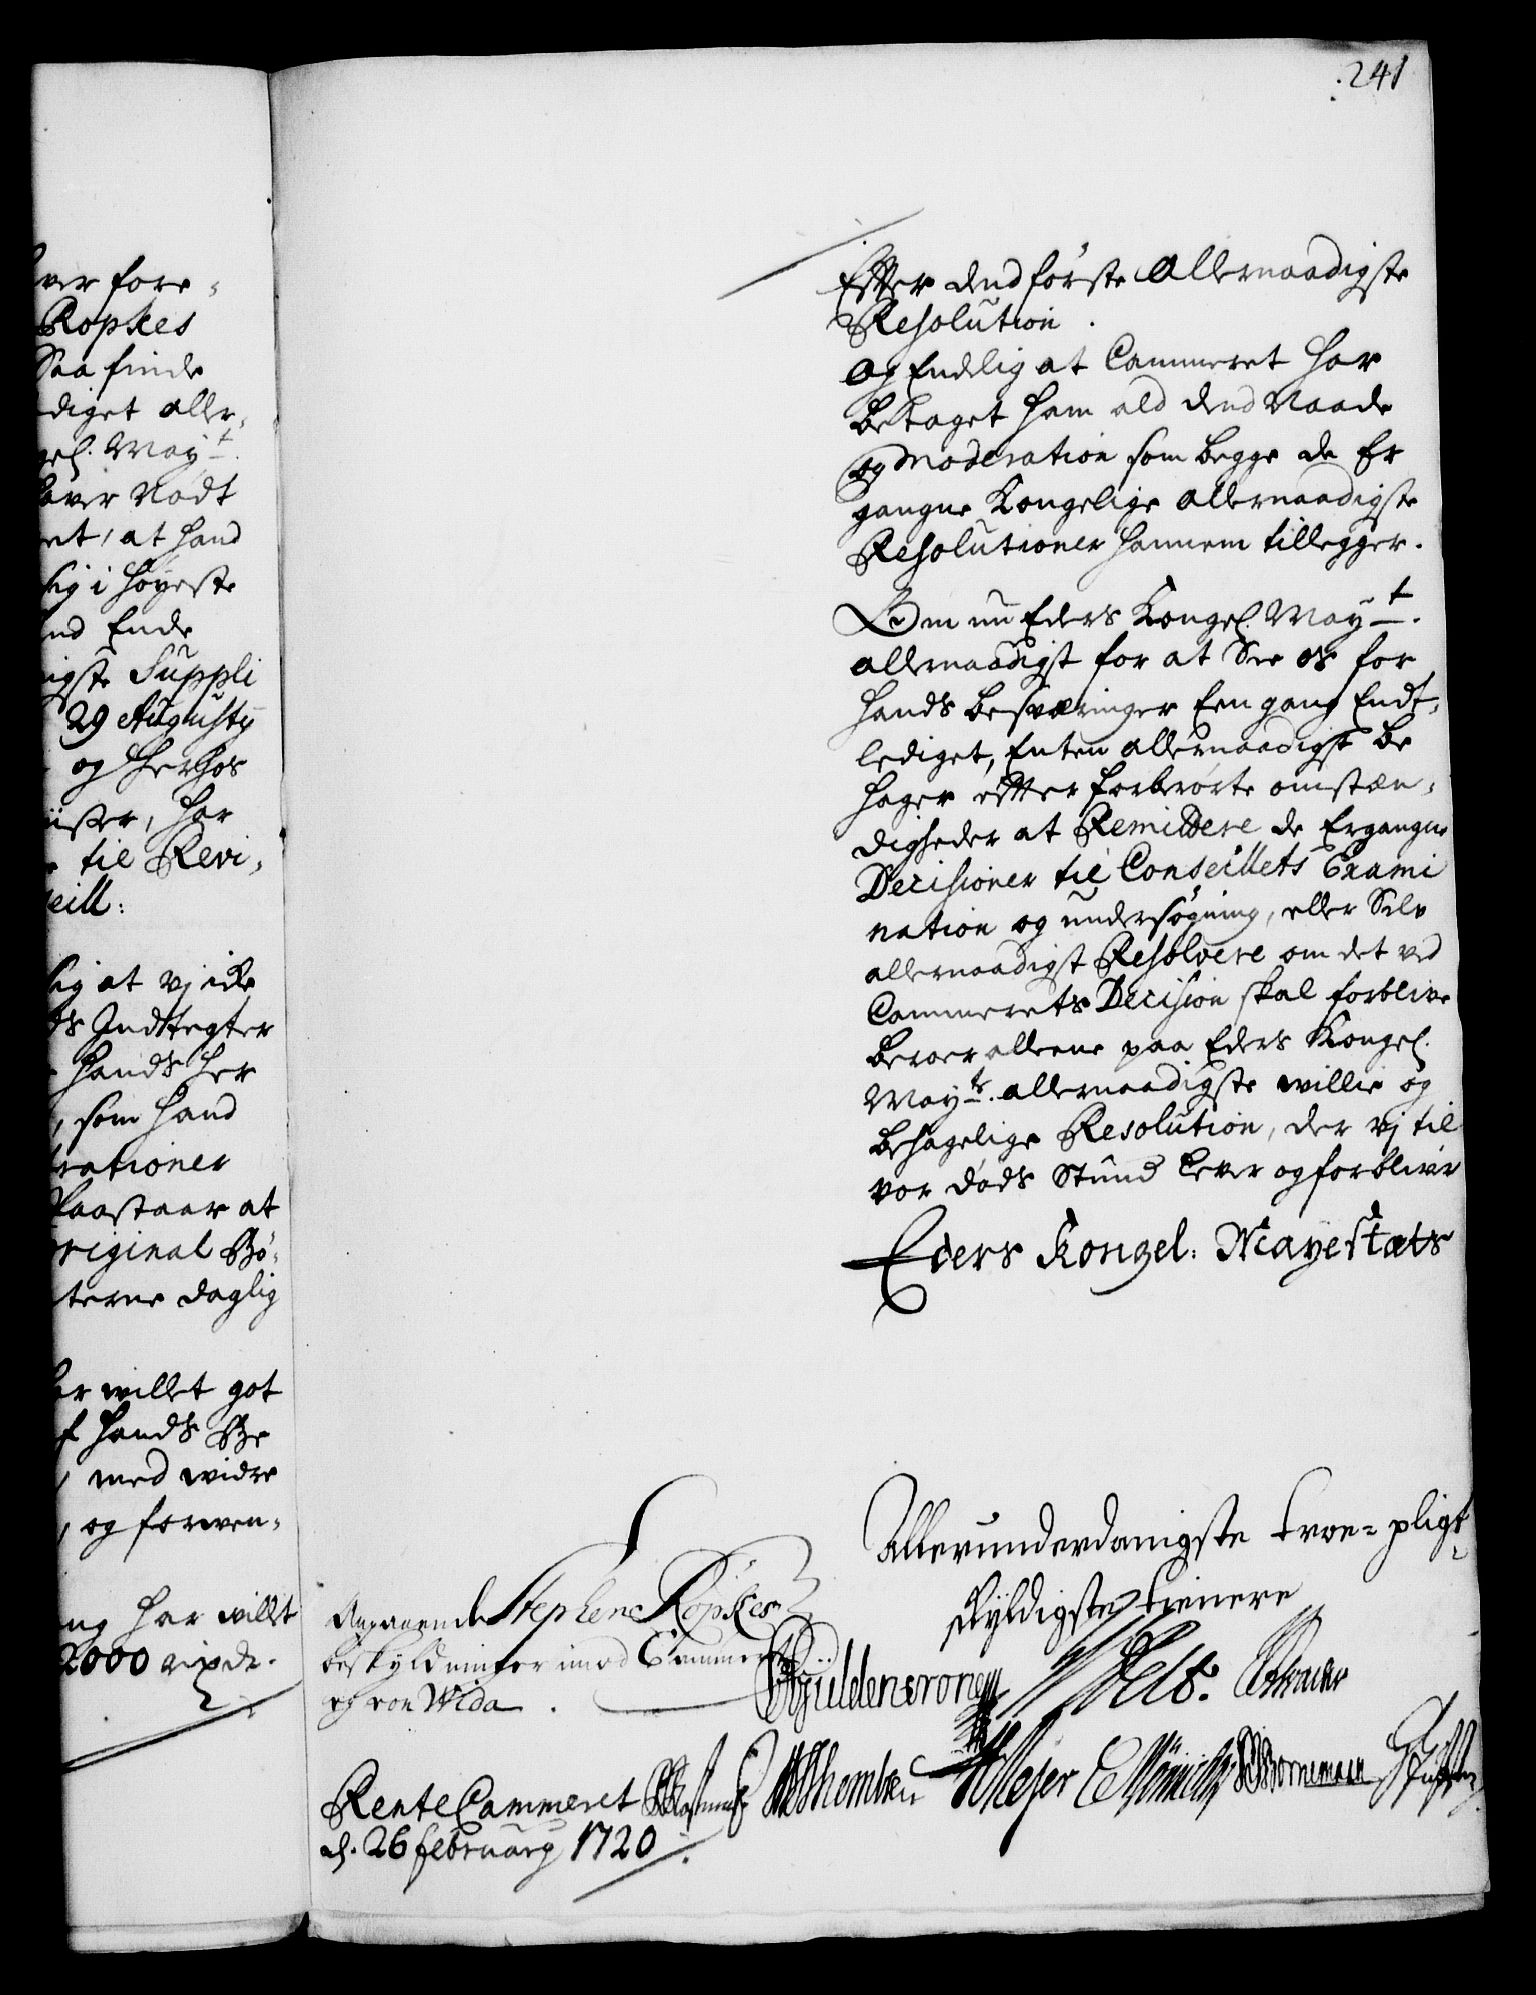 241
ver fore-
Ropkes
Saa finde
diget aller-
gel. May.t
haver Nødt
et, at hand
sig i høyeste
nd Ende
igste Suppli
29 Augusty
og herhos
isser, har
til Revi-
seill:
sig at vj icke
ds Indtegter
hands her
, som hand
trationer
Paastaar at
original Bø-
terne daglig
har willet got
af hands Be
, med widre
, og forwen-
ng har willet
2000 rixdr.
Efter dend første Allernaadigste
Resolution.
Og Endelig at Cammeret har
betaget ham ald dend Naade
og Moderation som begge de Er
gangne Kongelige allernaadigste
Resolutioner hannem tillegger.
Om nu Eders Kongel. May.t
allernaadigst for at See os for
hands besværinger Een gang Endt-
lediget, Enten allernaadigst be
hager efter forberørte omstæn-
digheder at Remittere de Ergangne
Decisioner til Conseillets Exami
nation og undersøgning, eller Selv
allernaadigst Resolvere om det ved
Cammerets Decision skal forblive
beroer alleene paa Eders Kongel.
May.ts allernaadigste willie og
behagelige Resolution, der vj til
vor døds Stund lever og forblivr
Eders Kongel: Mayestæts
Allerunderdanigste troe-pligt-
skyldigste tienere
Angaaende Stephene Röpkes
beskyldninger imod Cammeret
og von Wida.
Güldencrone
Rente Cammeret
d. 26 February 1720
Meyer
Bornemann